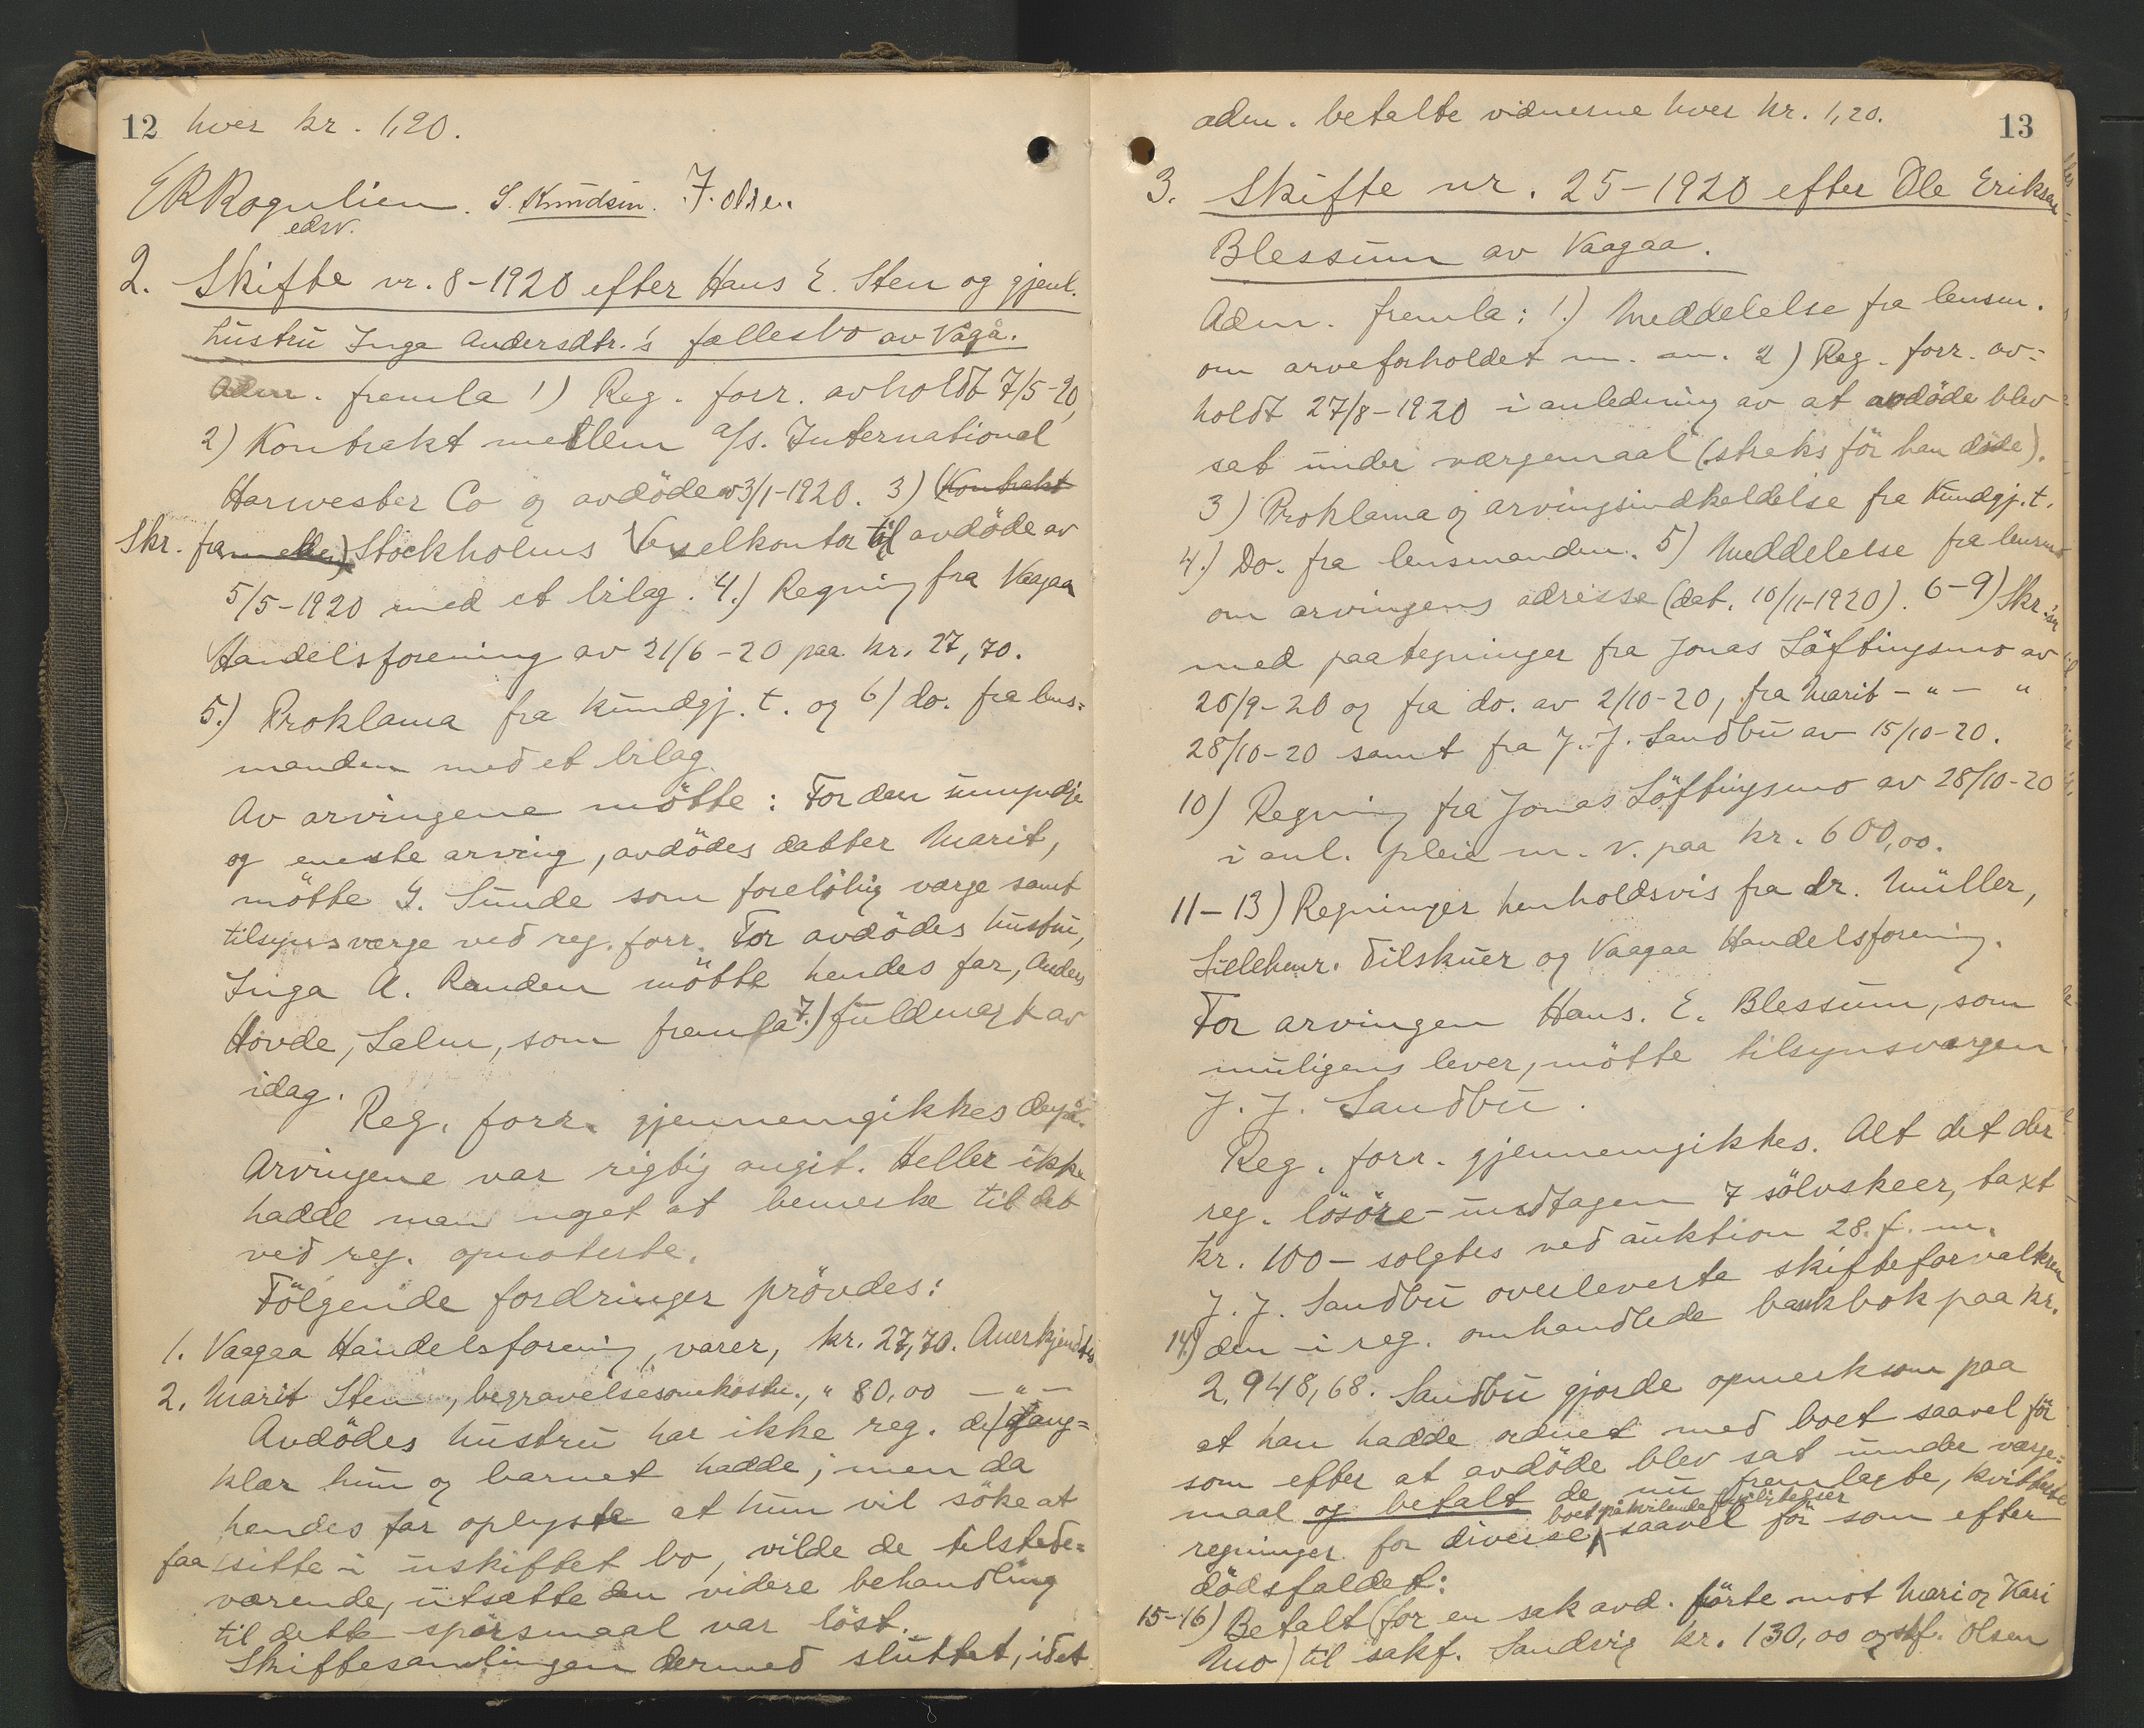 12 hver kr. 1,20.
E R Rognlien. S. Knudsen. F. Olsen
edsv.
2. Skifte nr. 8-1920 efter Hans E. Sten og gjenl.
hustru Inga Andersdtr.'s fællesbo av Vågå.
Adm. fremla 1) Reg. forr. avholdt 7/5-20,
2) Kontrakt mellem a/s. International
Harwester Co og avdöde av 3/1-1920. 3) (Kontrakt
Skr. fra mellem) Stockholms Vexelkontor til avdöde av
5/5-1920 med et bilag. 4.) Regning fra Vaagaa
Handelsforening av 21/6-20 paa kr. 27,70.
5.) Proklama fra Kundgj. t. og 6) do. fra lens=
manden med et bilag.
Av arvingene mötte: For den umyndje
og eneste arving, avdödes datter Marit,
mötte I. Sunde som forelöbig værge samt
tilsynsværge ved reg. forr. For avdödes hustru,
Inga A. Randen mötte hendes far, Anders
Hovde, Lalm, som fremla 7.) fuldmagt av
idag.
Reg. forr. gjennemgikkes derpå.
Arvingene var rigtig angit. Heller ikke
hadde man noget at bemerke til det
ved reg. opnoterte.
Fölgende fordringer prövdes:
1. Vaagaa Handelsforening, varer, kr. 27,70. Anerkjendtes
2. Marit Sten, begravelsesomkostn., " 80,00 - " -
Avdödes hustru har ikke reg. de gang=
klær hun og barnet hadde; men da
hendes far oplyste at hun vil söke at
faa sitte i uskiftet bo, vilde de tilstede=
værende, utsætte den videre behandling
til dette spörsmaal var löst.
Skiftesamlingen dermed sluttet, idet
adm. betalte vidnerne hver kr. 1,20. 13
3. Skifte nr. 25-1920 efter Ole Eriksen
Blessum av Vaagaa.
Adm. fremla: 1.) Meddelelse fra lensm.
om arveforholdet m. m. 2) Reg. forr. av=
holdt 27/8-1920 i anledning av at avdöde blev
sat under værgemaal (straks för han döde).
3) Proklama og arvingsindkaldelse fra Kundgj. t.
4.) Do. fra lensmanden. 5) Meddelelse fra lensmd
om arvingens adresse (dat. 10/11-1920). 6-9) Skr.
med paategninger fra Jonas Löftingsmo av
20/9-20 og fra do. av 2/10-20, fra Marit - " - "
28/10-20 samt fra J. J. Sandbu av 15/10-20.
10) Regning fra Jonas Löftingsmo av 28/10-20
i anl. pleie m. v. paa kr. 600,00.
11-13) Regninger henholdsvis fra dr. Müller,
Lillehmr. Tilskuer og Vaagaa Handelsforening.
For arvingen Hans. E. Blessum, som
muligens lever, mötte tilsynsværgen
J. J. Sandbu.
Reg. forr. gjennemgikkes. Alt det der
reg. lösöre undtagen 7 sölvskeer, taxt
kr. 100 - solgtes ved auktion 28. f. m.
J. J. Sandbu overleverte skifteforvalteren
14.) den i reg. omhandlede bankbok paa kr.
2.948,68. Sandbu gjorde opmerksom paa
at han hadde ordnet med boet saavel för
som efter at avdöde blev sat under værge=
maal og betalt de nu fremlagte, kvitterte
boet påhvilende
regninger for diverse saavel för som efter
dödsfaldet:
15-16) Betalt (for en sak avd. förte mot Mari og Kari
Mo) til sakf. Sandvig kr. 130,00 og sf. Olsen